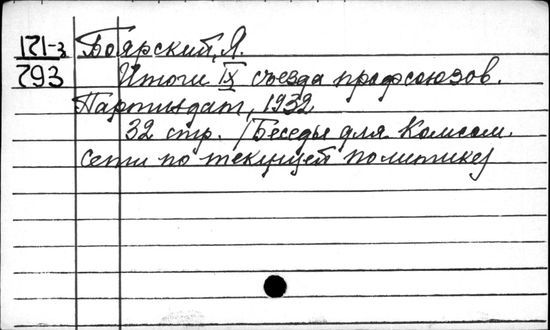 171-3 Боярский, Я.
793 Итоги IX съезда профсоюзов.
Партиздат, 1932
32 стр. /Беседы для комсом.
сети по текущей политике/